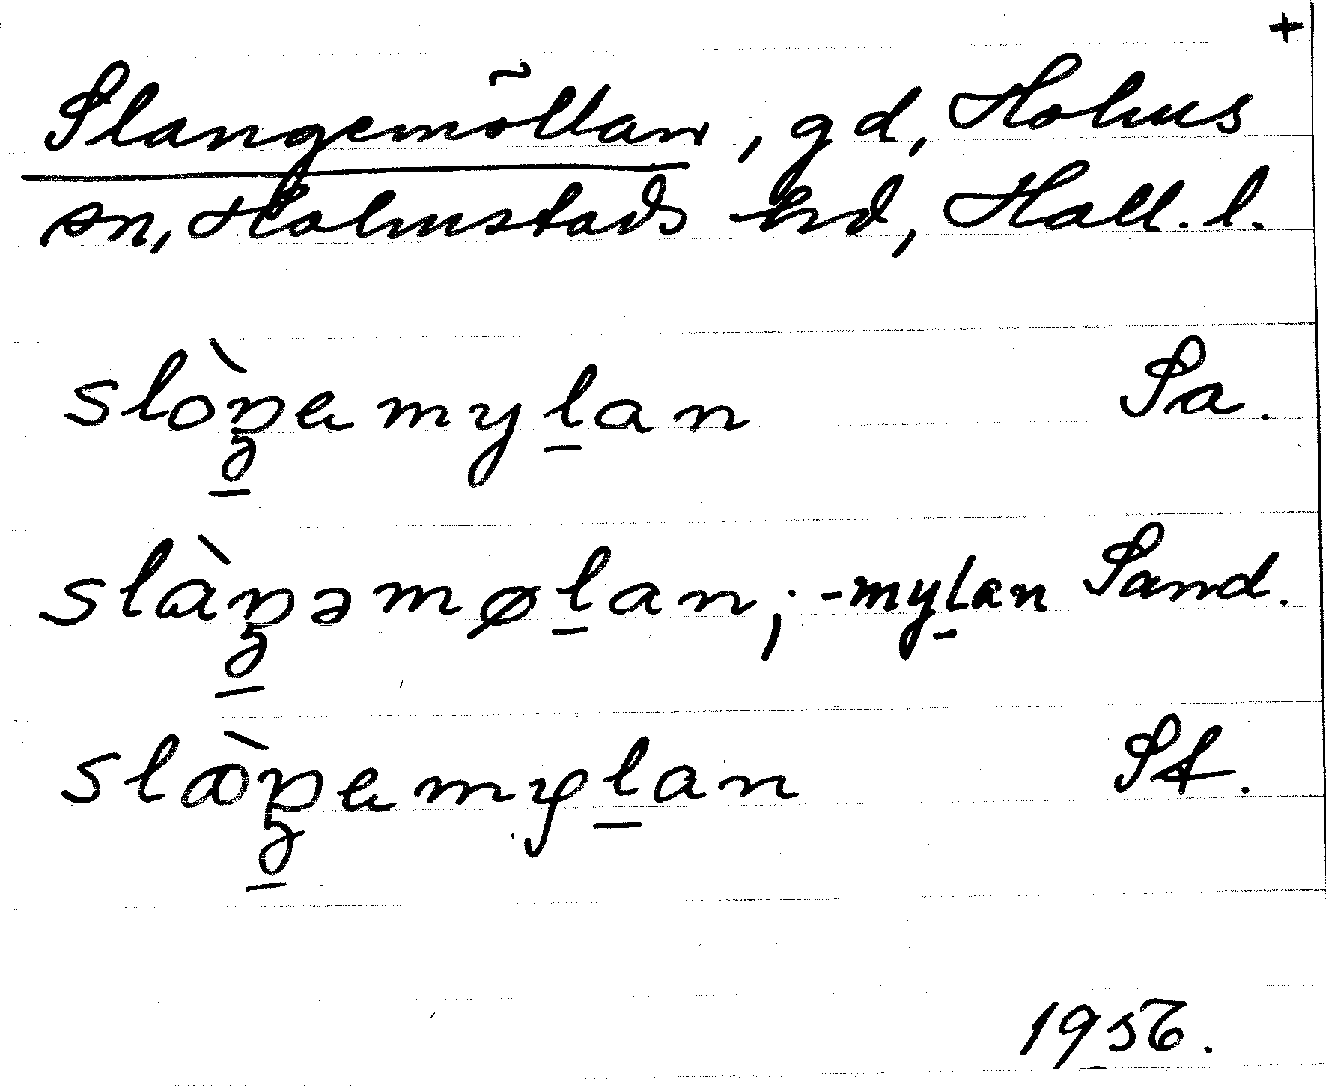 +
Slangemöllan, gd, Holms
sn, Halmstads hd, Hall. l.
slòŋemylan Sa.
slàŋəmølan; -mylan Sand.
slæ̀ŋemylan St.
1956.